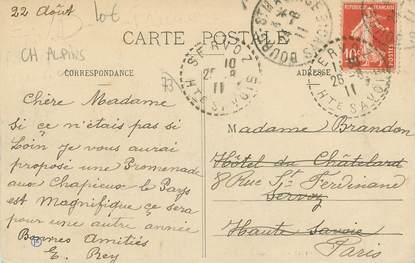 22 Août
10€
CH ALPINS
CARTE POSTALE
CORRESPONDANCE
ADRESSE
73
SERVOZ
10
25 -8
11
HTE SAVOIE
BOURG-ST-MAURICE
SAVOIE
11
SERVOZ
25 -8
11
HTE SAVOIE
10c
Chère Madame
Si ce n'étais pas si
Loin je vous aurai
proposé une Promenade
aux Chapieux le Pays
est Magnifique ce sera
pour une autre année
Bonnes Amitiés
E. Rey
Madame Brandon
Hôtel du Chatelard
8 Rue St Ferdinand
Servoz
Haute Savoie
Paris